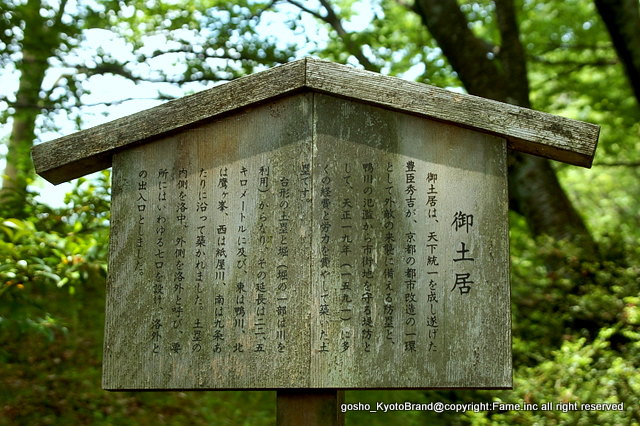 御土居
御土居は、天下統一を成し遂げた
豊臣秀吉が、京都の都市改造の一環
として外敵の来襲に備える防塁と、
鴨川の氾濫から市街地を守る堤防と
して、天正一九年(一五九一)に多
くの経費と労力を費やして築いた土
塁です。
台形の土塁と堀(堀の一部は川を
利用)からなり、その延長は二二・五
キロメートルに及び、東は鴨川、北
は鷹ヶ峯、西は紙屋川、南は九条あ
たりに沿って築かれました。土塁の
内側を洛中、外側を洛外と呼び、要
所にはいわゆる七口を設け、洛外と
の出入口としました。
gosho_KyotoBrand@copyright:Fame.inc all right reserved